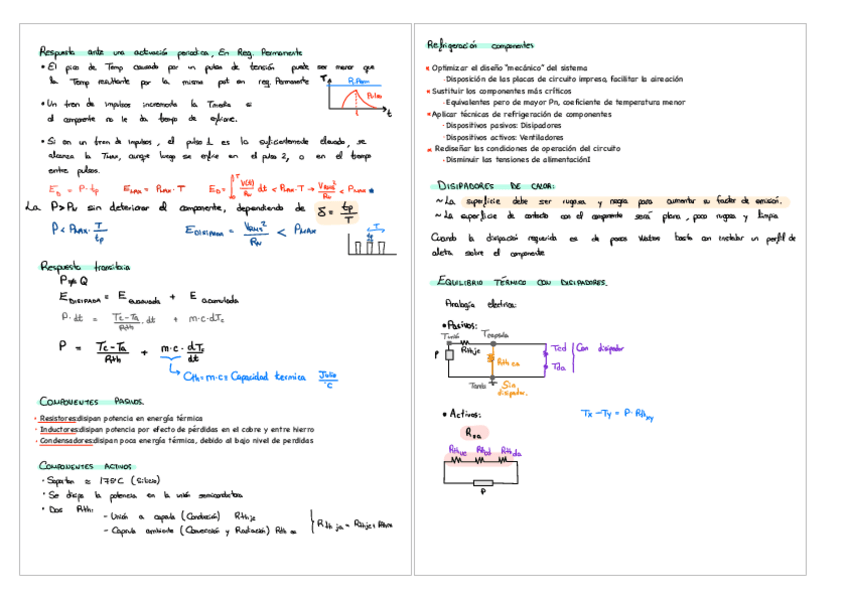 Respuesta ante una activación periodica, En Reg. Permanente
• El pico de Temp causado por un pulso de tensión puede ser menor que
la Temp resultante por la misma pot en reg. Permanente
• Un tren de impulsos incrementa la Tmedia si
el componente no le da tiempo de enfriarse.
• Si en un tren de impulsos, el pulso 1 es lo suficientemente elevado, se
alcanza la Tmax, aunque luego se enfrie en el pulso 2, o en el tiempo
entre pulsos.
T
R. Perm
Pulso
t
E_D = P·tp   E_MAX = P_MAX·T   E_D = ∫₀ᵀ V(t)²/R_N dt < P_MAX·T → V_RMS²/R_N < P_MAX
La P>P_N sin deteriorar el componente, dependiendo de δ = tp/T
P < P_MAX·T/tp   E_DISIPADA = V_RMS²/R_N < P_MAX
T
tp
Respuesta transitoria
P ≠ Q
E_DISIPADA = E evacuada + E acumulada
P·dt = (Tc-Ta)/Rth·dt + m·c·dTc
P = (Tc-Ta)/Rth + m·c·dTc/dt
Cth = m·c = Capacidad termica Julio/°C
COMPONENTES PASIVOS.
· Resistores:disipan potencia en energía térmica
· Inductores:disipan potencia por efecto de pérdidas en el cobre y entre hierro
· Condensadores:disipan poca energía térmica, debido al bajo nivel de perdidas
COMPONENTES ACTIVOS
· Soportan ≈ 175°C (Silicio)
· Se disipa la potencia en la unión semiconductora
· Dos Rth:
– Unión a capsula (Conducción) Rthjc
– Capsula ambiente (Convección y Radiación) Rth ca
Rthja = Rthjc + Rthca
Refrigeración componentes
Optimizar el diseño "mecánico" del sistema
·Disposición de las placas de circuito impreso, facilitar la aireación
Sustituir los componentes más críticos
·Equivalentes pero de mayor Pn, coeficiente de temperatura menor
Aplicar técnicas de refrigeración de componentes
·Dispositivos pasivos: Disipadores
·Dispositivos activos: Ventiladores
Rediseñar las condiciones de operación del circuito
·Disminuir las tensiones de alimentaciónI
DISIPADORES DE CALOR:
~ La superficie debe ser rugosa y negra para aumentar su factor de emisión.
~ La superficie de contacto con el componente será plana, poco rugosa y limpia
Cuando la disipación requerida es de pocos Watios basta con instalar un perfil de
aleta sobre el componente
EQUILIBRIO TÉRMICO CON DISIPADORES.
Analogía electrica:
• Pasivos:
Tunión
Tcapsula
Rthjc
P
Rthca
Tcd
Tda
Con disipador
Tamb
Sin
disipador.
• Activos:
Tx - Ty = P·Rthxy
Rca
Rthcd
P